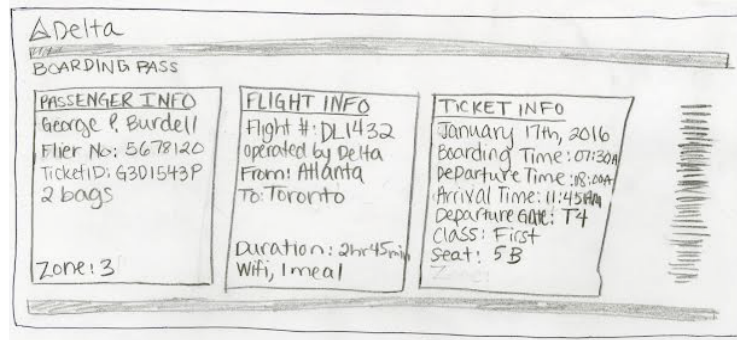 Delta
BOARDING PASS
PASSENGER INFO
George P. Burdell
Flier No: 5678120
TicketID: G301543P
2 bags
Zone: 3
FLIGHT INFO
Flight #: DL1432
operated by Delta
From: Atlanta
To: Toronto
Duration: 2hr45min
Wifi, 1 meal
TICKET INFO
January 17th, 2016
Boarding Time: 07:30A
Departure Time: 08:00AM
Arrival Time: 11:45AM
Departure Gate: T4
Class: First
Seat: 5B